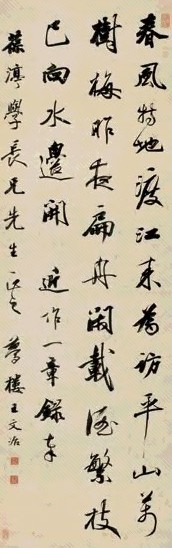 春風特地渡江来為訪平山万
樹梅昨夜扁舟閑載酒繁枝
已向水邊開 近作一章録奉
葆淳學長兄先生正之 夢樓王文治